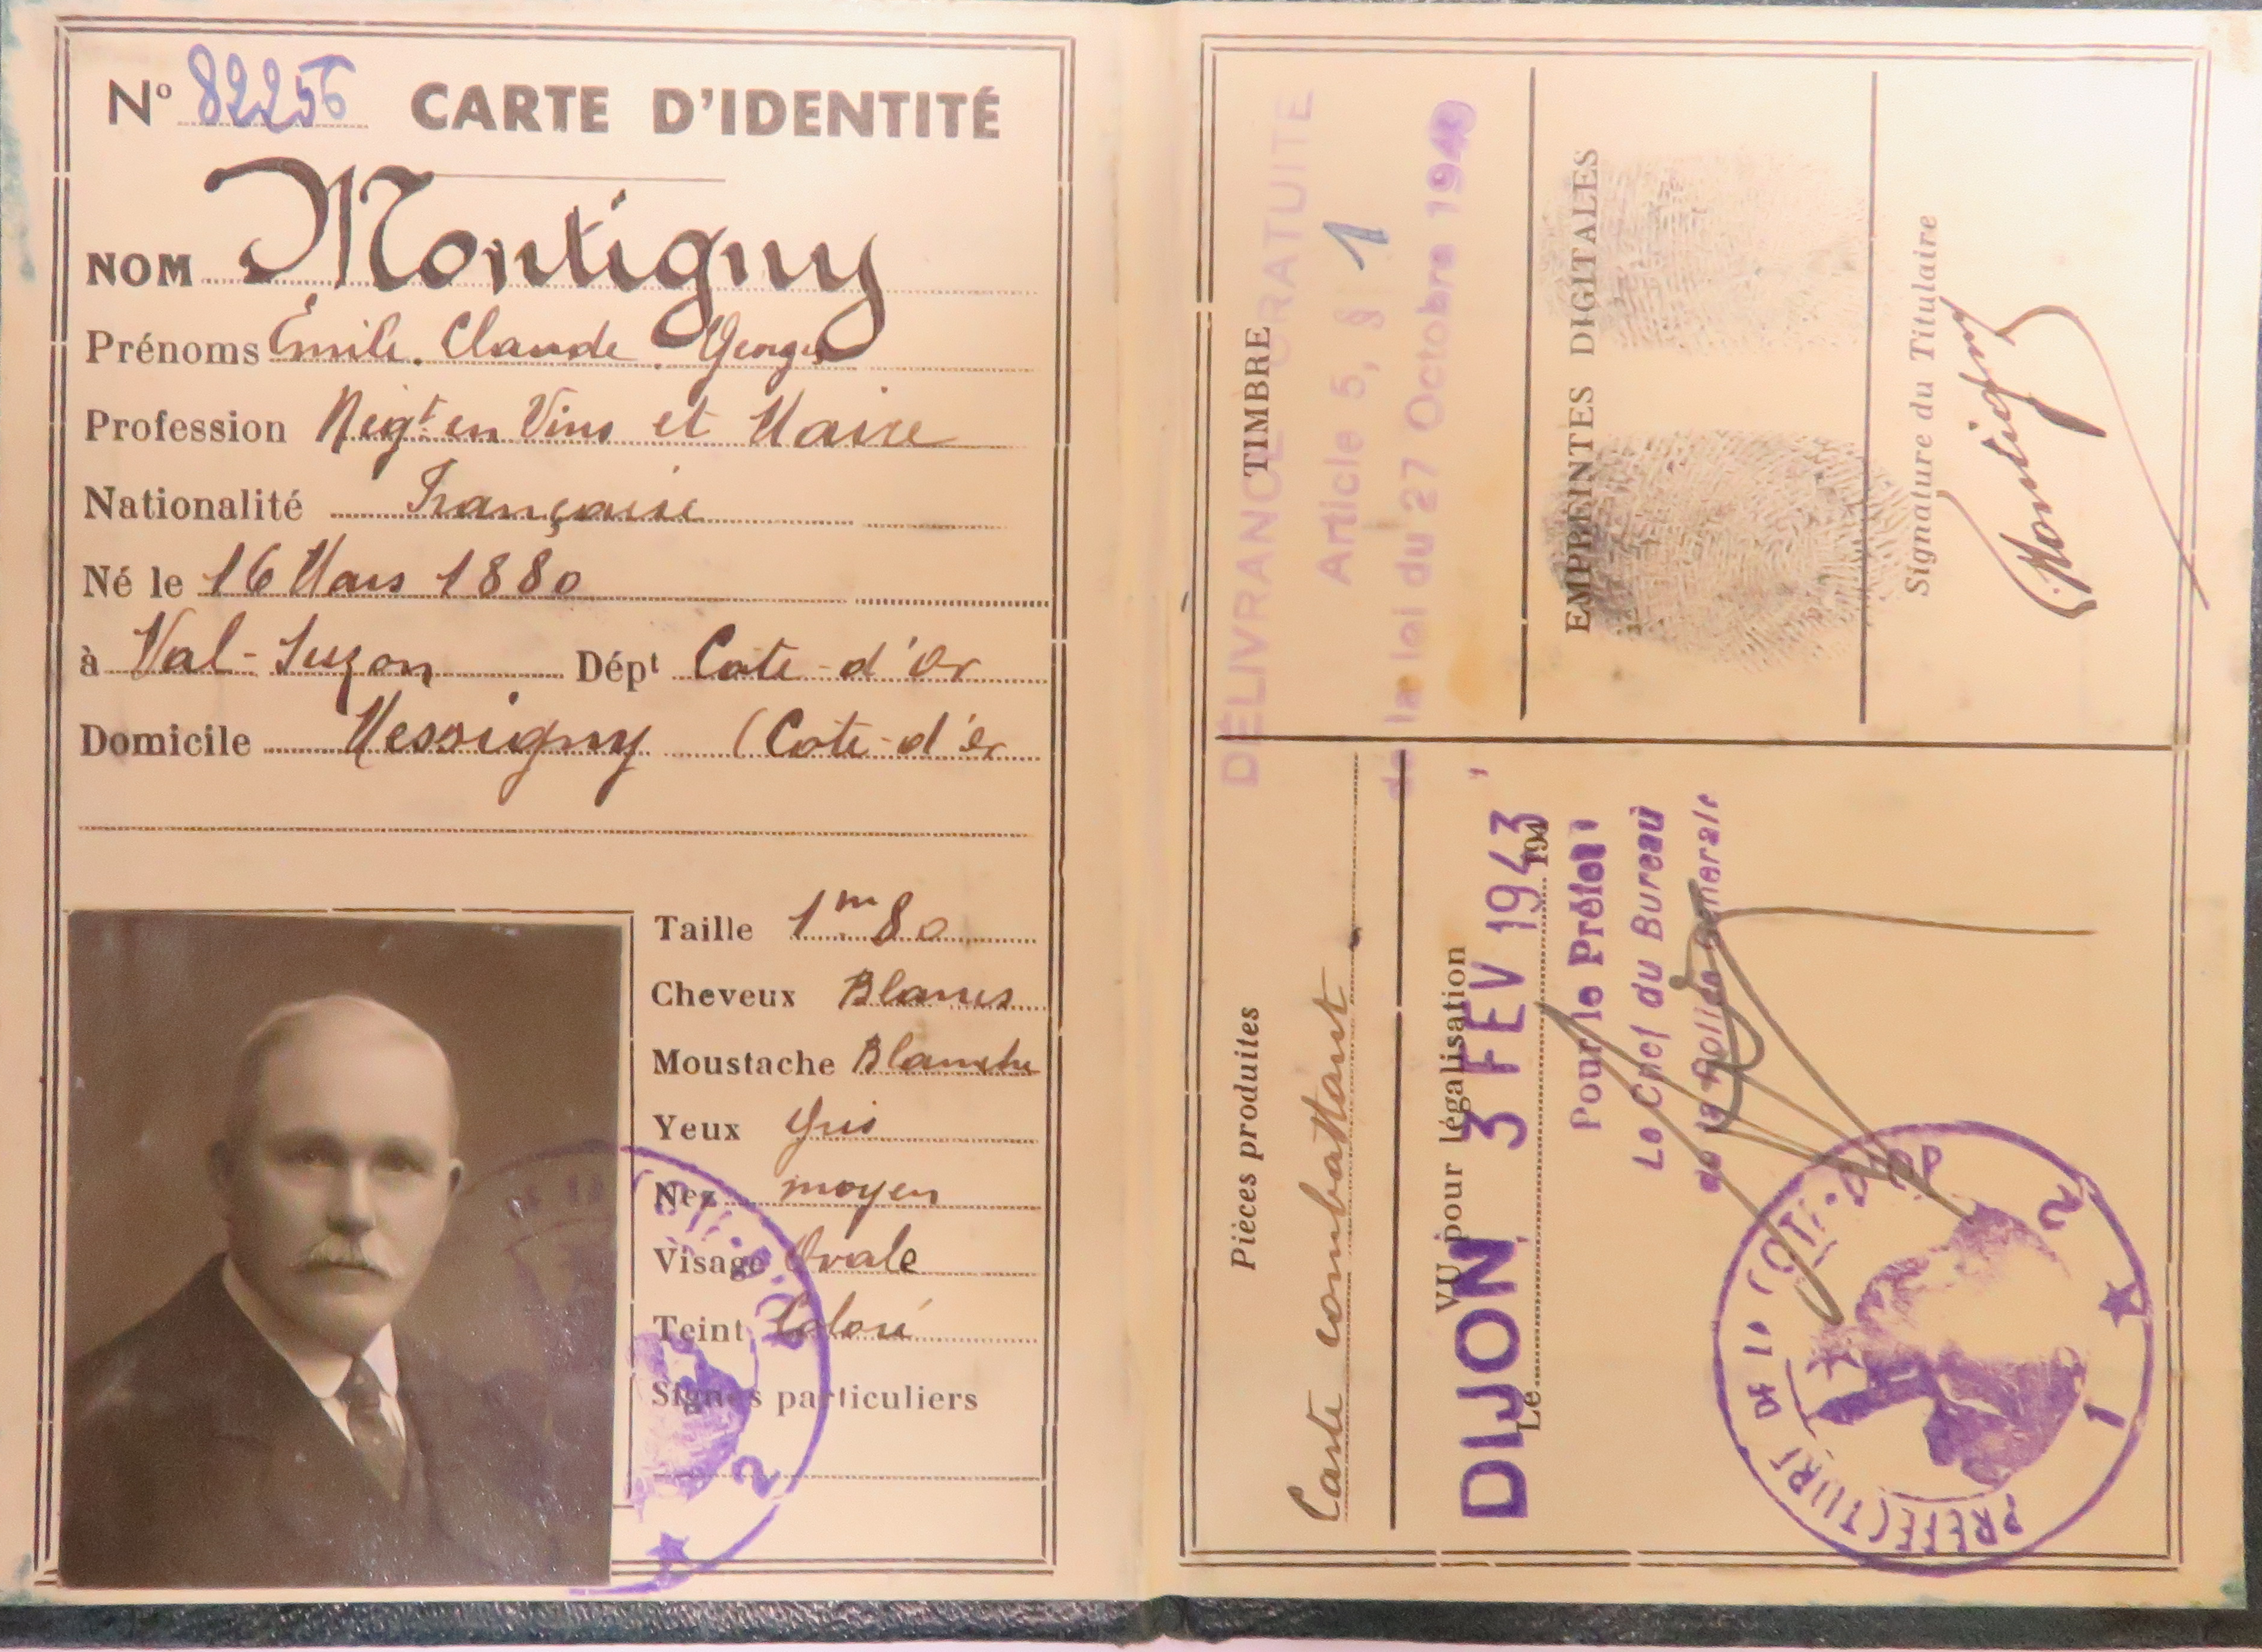 N° 82256 CARTE D'IDENTITÉ
NOM Montigny
Prénoms Émile. Claude. Georges
Profession Négt en Vins et Maire
Nationalité Française
Né le 16 Mars 1880
à Val-Suzon Dépt Cote-d'or
Domicile Messigny (Cote-d'or
Taille 1m80
Cheveux Blancs
Moustache Blanche
Yeux gris
Nez moyen
Visage Ovale
Teint Coloré
Signes particuliers
2
TIMBRE
DÉLIVRANCE GRATUITE
Article 5, § 1
de la loi du 27 Octobre 1940
EMPREINTES DIGITALES
Signature du Titulaire
Montigny
Pièces produites
Carte combattant
VU pour légalisation
DIJON 3 FEV 1943
Le 194
Pour le Préfet
Le Chef du Bureau
de la Police Générale
PREFECTURE DE LA COTE-D'OR
1 2